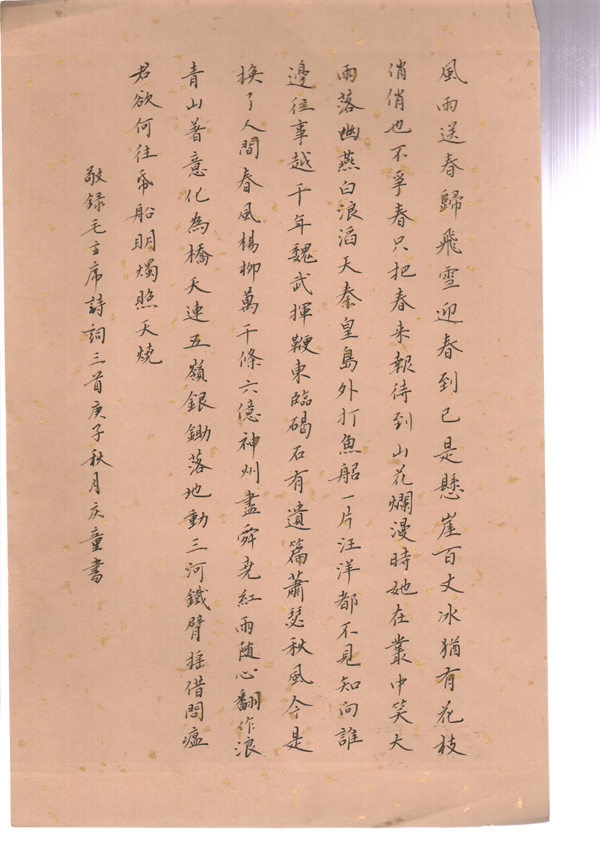 風雨送春歸飛雪迎春到已是懸崖百丈冰猶有花枝
俏俏也不爭春只把春来報待到山花爛漫時她在叢中笑大
雨落幽燕白浪滔天秦皇島外打魚船一片汪洋都不見知向誰
邊往事越千年魏武揮鞭東臨碣石有遺篇蕭瑟秋風今是
換了人間春風楊柳萬千條六億神州盡舜尭紅雨随心翻作浪
青山著意化為橋天連五嶺銀鋤落地動三河鐵臂摇借問瘟
君欲何往帋船明燭照天燒
敬録毛主席詩詞三首庚子秋月庆童書